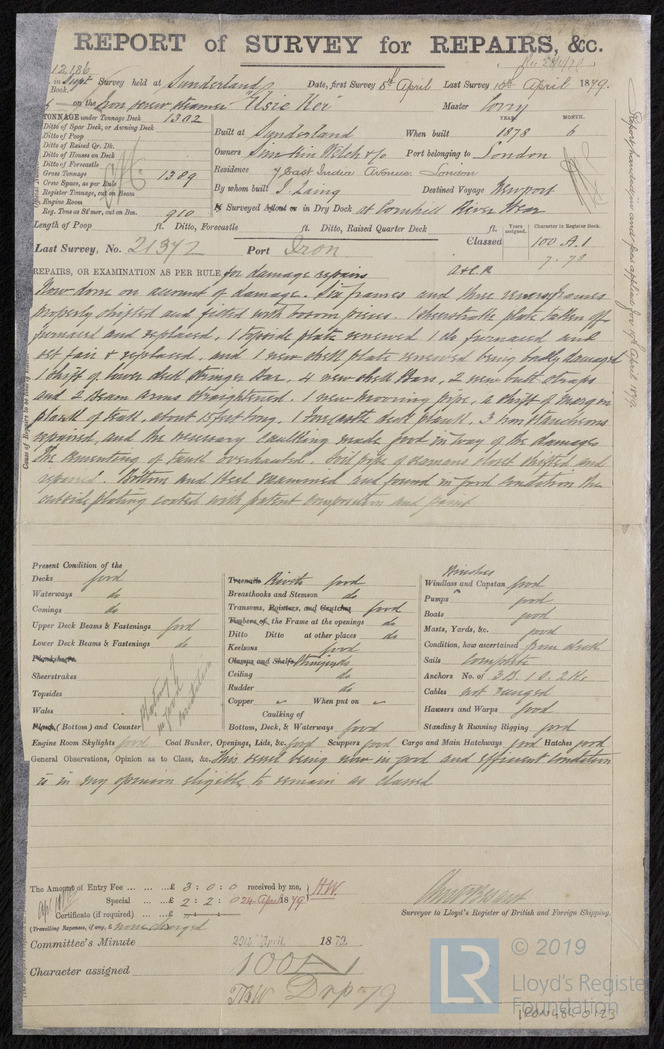 REPORT of SURVEY for REPAIRS, &c.
12,186
in Sept Survey held at Sunderland Date, first Survey 8th April Last Survey 10th April 1879.
Book.
on the Iron screw steamer Elsie Master Corry
TONNAGE under Tonnage Deck 1302
YEAR. MONTH.
Ditto of Spar Deck, or Awning Deck
Built at Sunderland When built 1878 6
Ditto of Poop
Ditto of Raised Qr. Dk.
Owners Simkin Welch & Co Port belonging to London
Ditto of Houses on Deck
Ditto of Forecastle
Residence 7 East India Avenue. London
Gross Tonnage 1389
Crew Space, as per Rule
By whom built J. Laing Destined Voyage Newport
Register Tonnage, cut on Beam
Engine Room
If Surveyed Afloat or in Dry Dock at Cornhill River Wear
Reg. Tons as St'mer, cut on Bm. 910
Length of Poop ft. Ditto, Forecastle ft. Ditto, Raised Quarter Deck ft. Years assigned. Character in Register Book.
Last Survey, No. 21372 Port Iron Classed 100 A.1
7.78
REPAIRS, OR EXAMINATION AS PER RULE for damage repairs A&C.R
Now done on account of damage. Six frames and three reverse frames
properly shifted and fitted with bosom pieces. 1 sheerstrake plate taken off
furnaced and replaced, 1 topside plate renewed 1 do furnaced and
set fair & replaced, and 1 new shell plate renewed being badly damaged
1 shift of lower deck stringer bar, 4 new shell bars, 2 new butt straps
and 2 Beam arms straightened. 1 new mooring pipe, a shift of margin
plank of teak, about 15 feet long. 1 forecastle deck plank. 3 iron stanchions
repaired, and the necessary caulking made good in way of the damages
The cementing of tank overhauled. Soil pipe of seamans closet shifted and
repaired. Bottom and keel examined and found in good condition the
outside plating coated with patent composition and paint
Report handed in and fee applied for 17th April 1879
Present Condition of the
Decks good
Waterways do
Comings do
Upper Deck Beams & Fastenings good
Lower Deck Beams & Fastenings do
Planksheers
Sheerstrakes
Topsides
Wales
Plank (Bottom) and Counter
Plating in good condition
Treenails Rivets good
Breasthooks and Stemson do
Transoms, Pointers, and Crutches good
Timbers of the Frame at the openings do
Ditto Ditto at other places do
Keelsons good
Clamps and Shelfs Stringers do
Ceiling do
Rudder do
Copper When put on
Caulking of
Bottom, Deck, & Waterways good
Winches
Windlass and Capstan good
Pumps good
Boats good
Masts, Yards, &c. good
Condition, how ascertained from deck
Sails Complete
Anchors No. of 3 B. 1 S. 2 Ke
Cables not ranged
Hawsers and Warps good
Standing & Running Rigging good
Engine Room Skylights good Coal Bunker, Openings, Lids, &c. good Scuppers good Cargo and Main Hatchways good Hatches good
General Observations, Opinion as to Class, &c. This vessel being now in good and efficient condition
is in my opinion eligible to remain as classed
The Amount of Entry Fee £ 3 : 0 : 0 received by me, H.W.
Special £ 2 : 2 : 0 24 April 1879
Certificate (if required) £
(Travelling Expenses, if any, £ none charged
Surveyor to Lloyd's Register of British and Foreign Shipping.
Committee's Minute 29th April 1879.
Character assigned 100A1
© 2019
LR
Lloyd's Register
Foundation
IRON486-0123